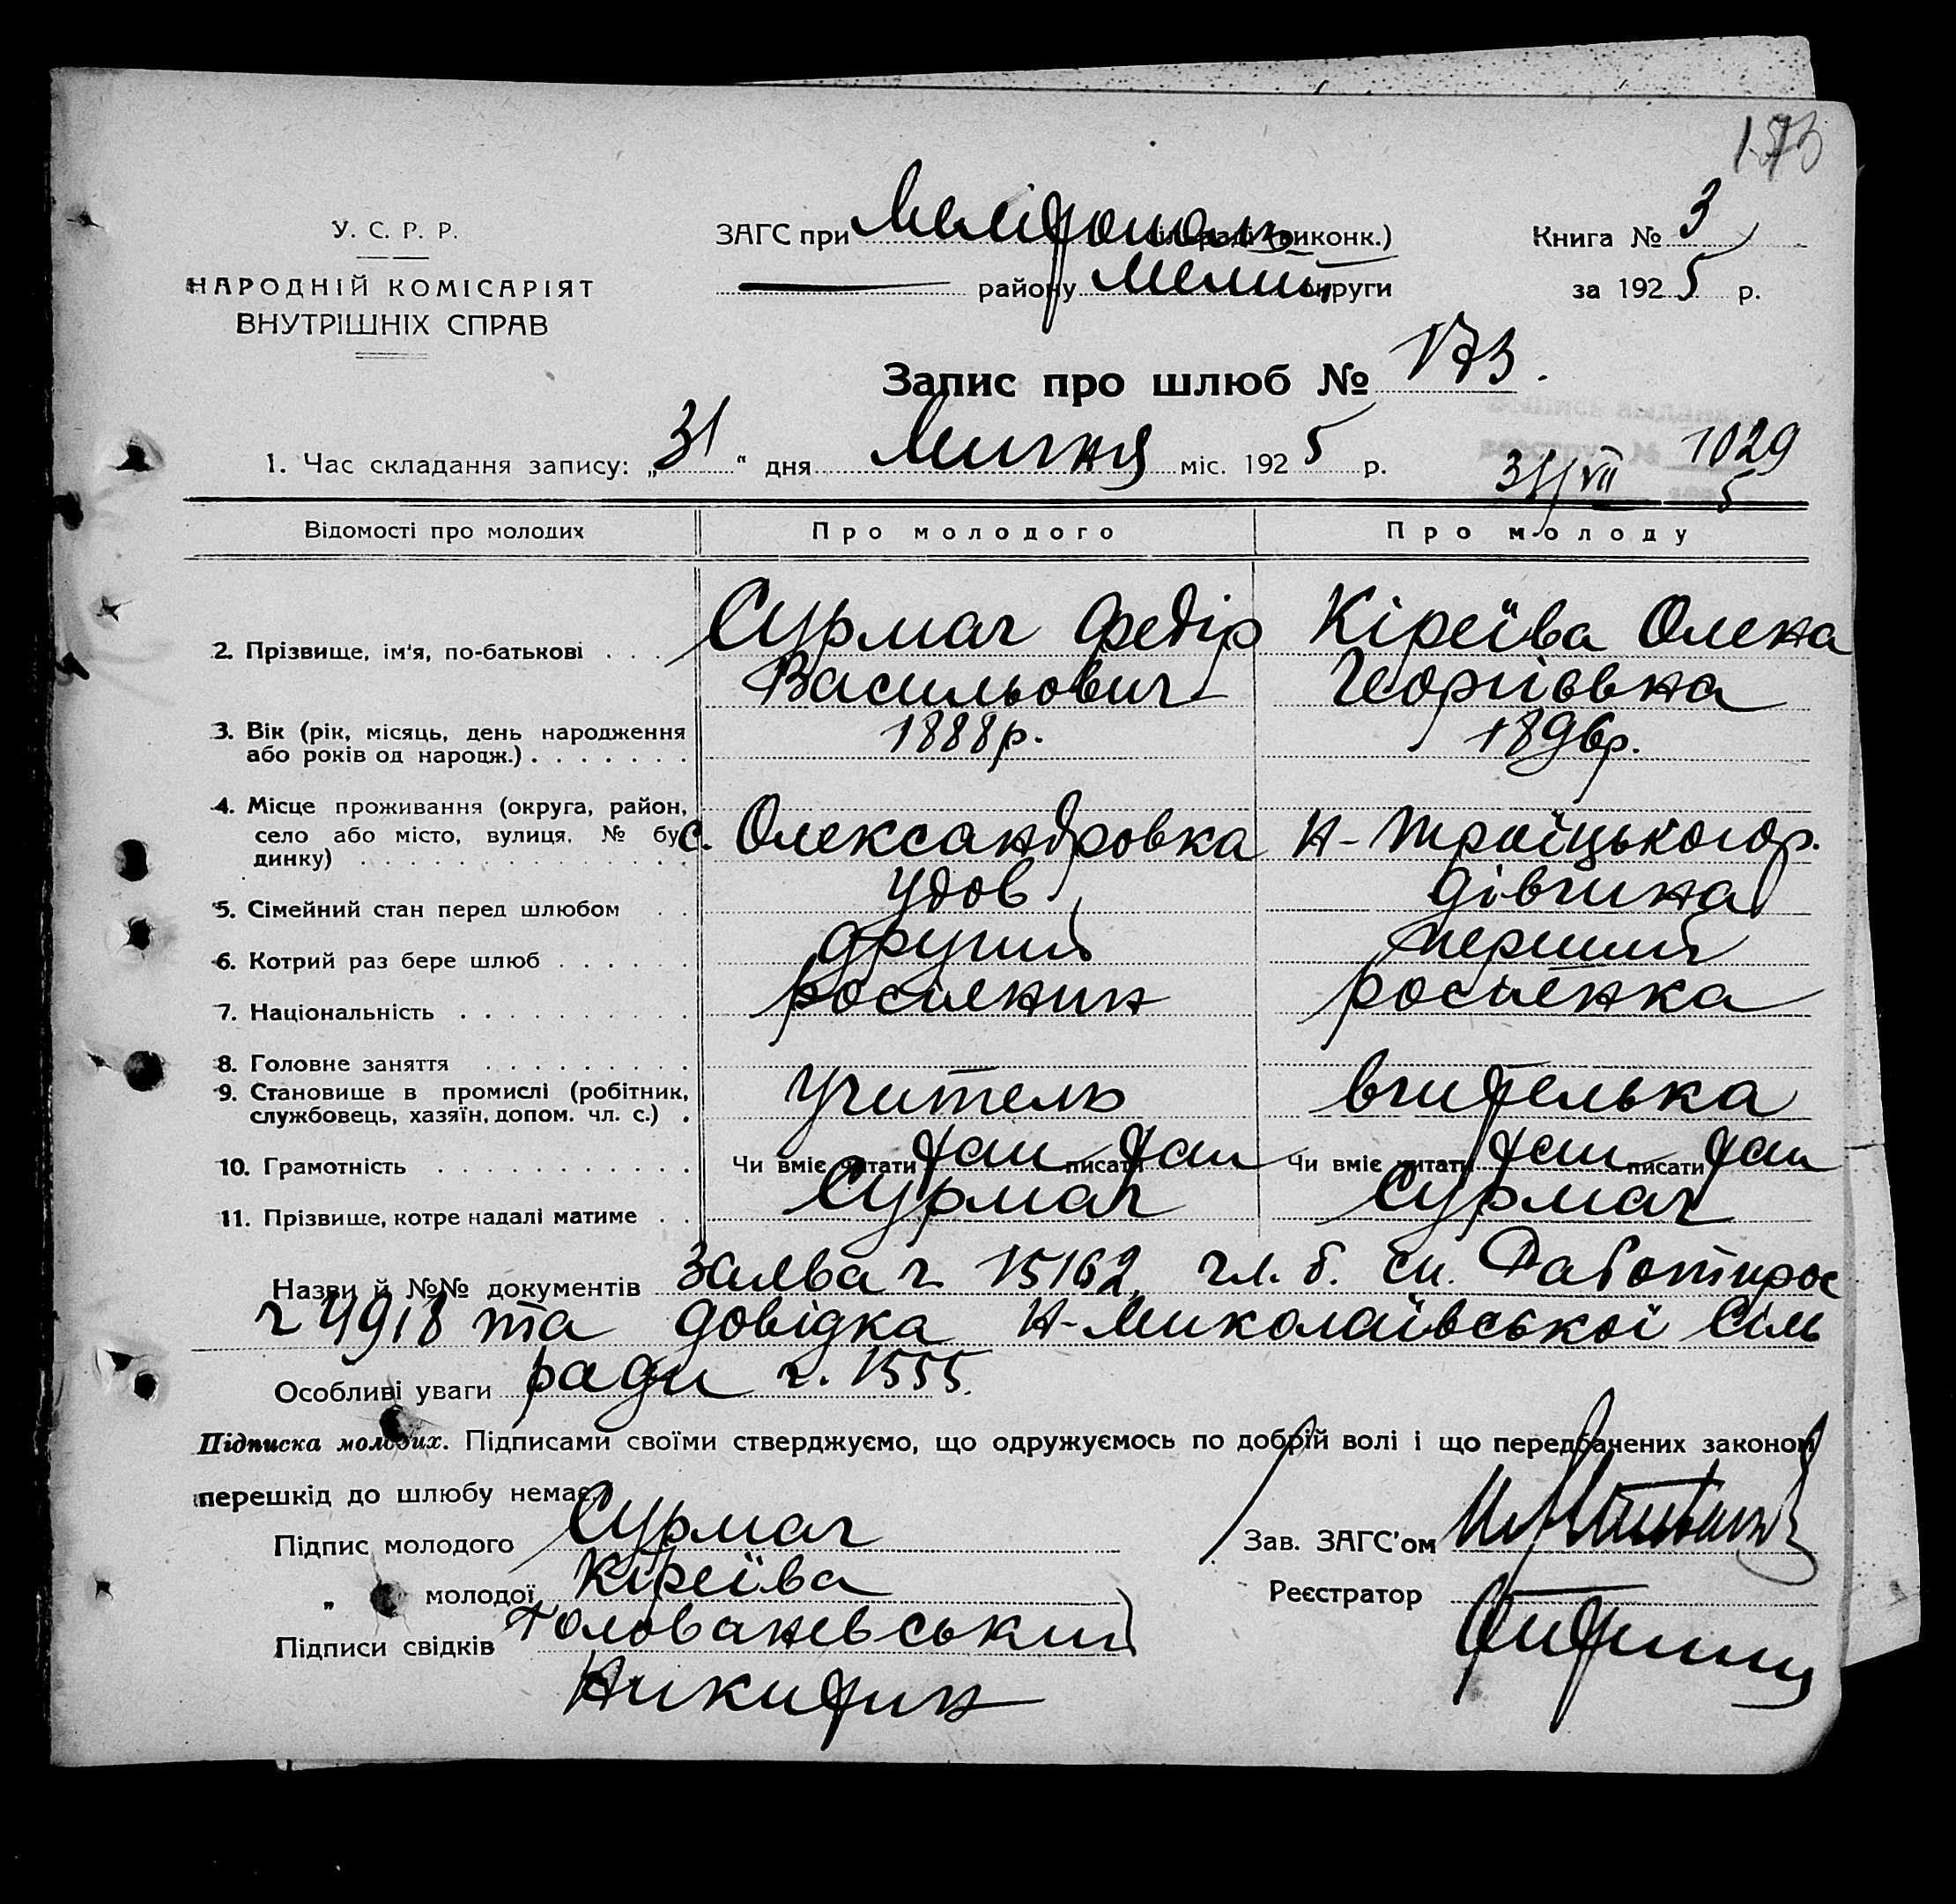 173
У. С. Р. Р.
НАРОДНІЙ КОМІСАРІЯТ
ВНУТРІШНІХ СПРАВ
ЗАГС при Мелітополь виконк.)
району Меліт округи
Книга № 3
за 1925 р.
Запис про шлюб № 173.
1. Час складання запису: „31" дня Липня міс. 1925 р.
1029
31/VII 5
Відомості про молодих Про молодого Про молоду
2. Прізвище, ім'я, по-батькові . . . Сурмач Федір Кіреїва Олена
Васильович Георгіївна
3. Вік (рік, місяць, день народження 1888р. 1896р.
або років од народж.) . . . . . . .
4. Місце проживання (округа, район,
село або місто, вулиця, № бу с. Олександровка Н-Троїцького р.
динку) . . . . . . . . . . . . .
5. Сімейний стан перед шлюбом . . удов дівчина
6. Котрий раз бере шлюб . . . . . . другий перший
7. Національність . . . . . . . . . . росіянин росіянка
8. Головне заняття . . . . . . . . .
9. Становище в промислі (робітник, учитель вчителька
службовець, хазяїн, допом. чл. с.) .
10. Грамотність . . . . . . . . . . . Чи вміє читати так писати так Чи вміє читати так писати так
11. Прізвище, котре надалі матиме . . Сурмач Сурмач
Назви й №№ документів Заява ч 15162, чл. б. сп. Работпрос
ч 4918 та довідка Н-Миколаївської Сіль
Особливі уваги ради ч. 1555.
Підписка молодих. Підписами своїми стверджуємо, що одружуємось по добрій волі і що передбачених законом
перешкід до шлюбу немає.
Підпис молодого Сурмач
Зав. ЗАГС'ом
„ молодої Кіреїва
Реєстратор
Підписи свідків Голованевський
Никитин